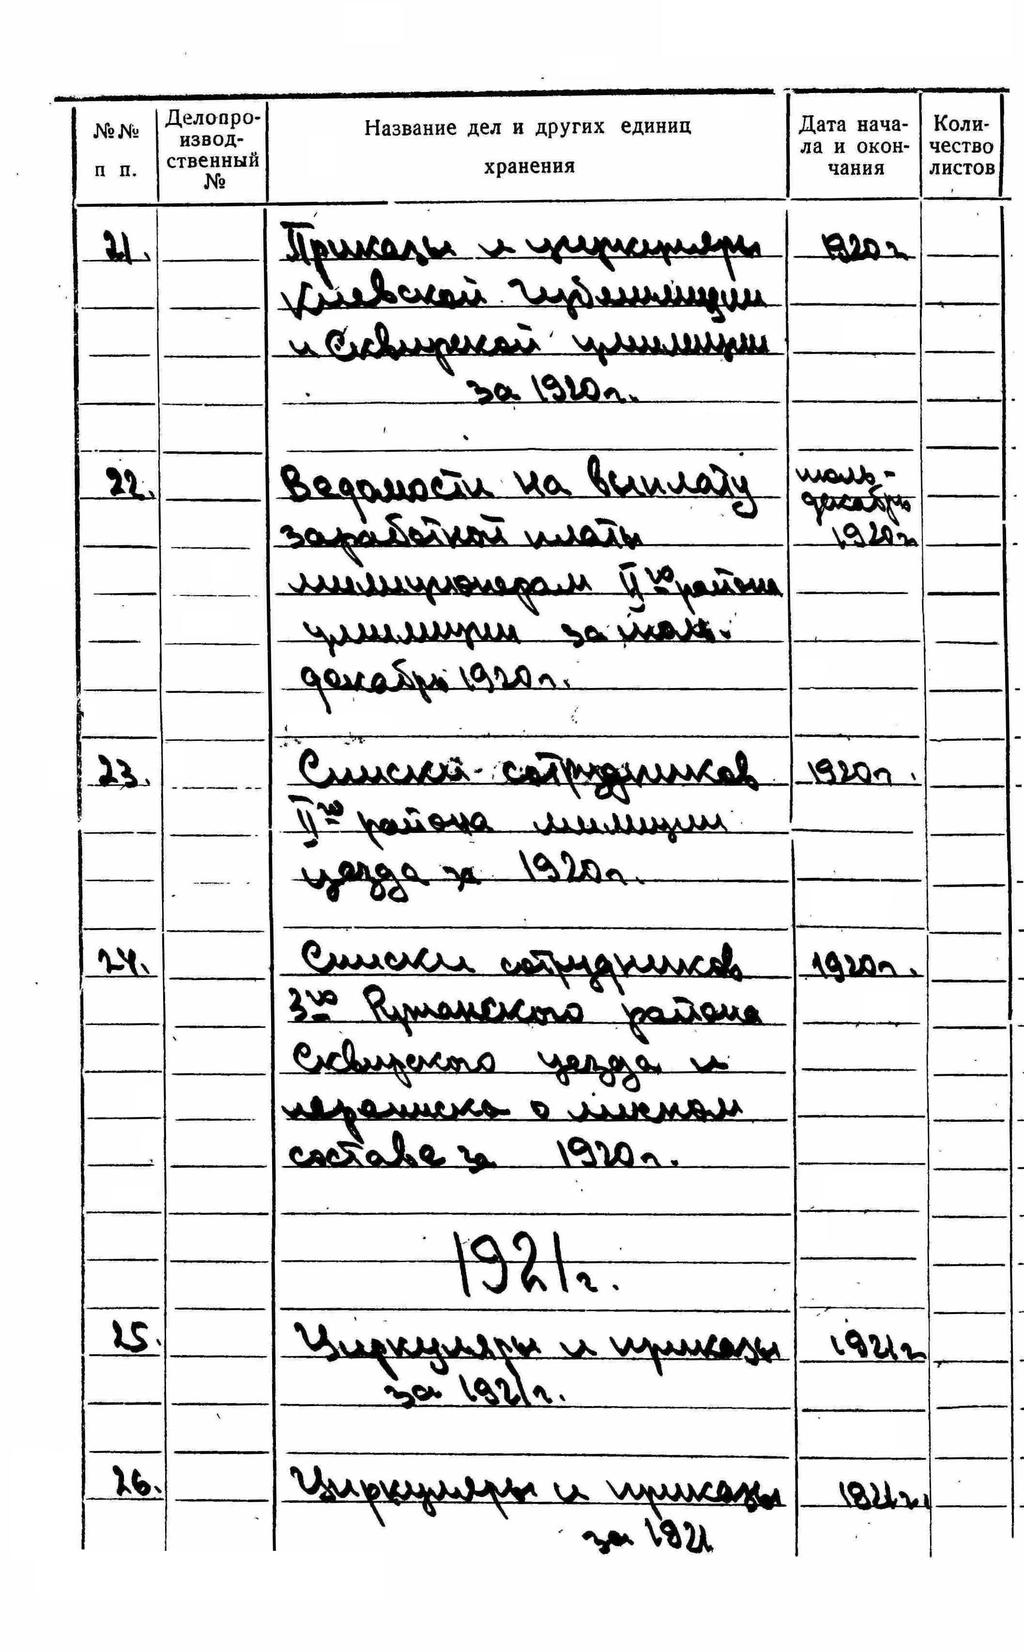 №№ п п. Делопроизводственный № Название дел и других единиц хранения Дата начала и окончания Количество листов
21. Приказы и циркуляры 1920г
Киевской Губмилиции
и Сквирской умилиции
за 1920г.
22. Ведомости на выплату июль-
декабрь
заработной платы 1920г
милиционерам II го района
умилиции за июль-
декабрь 1920г.
23. Списки сотрудников 1920г.
II го района милиции
уезда за 1920г.
24. Списки сотрудников 1920г.
3 го Ружанского района
Сквирского уезда и
переписка о личном
составе за 1920г.
1921г.
25. Циркуляры и приказы 1921г
за 1921г.
26. Циркуляры и приказы 1921г.
за 1921